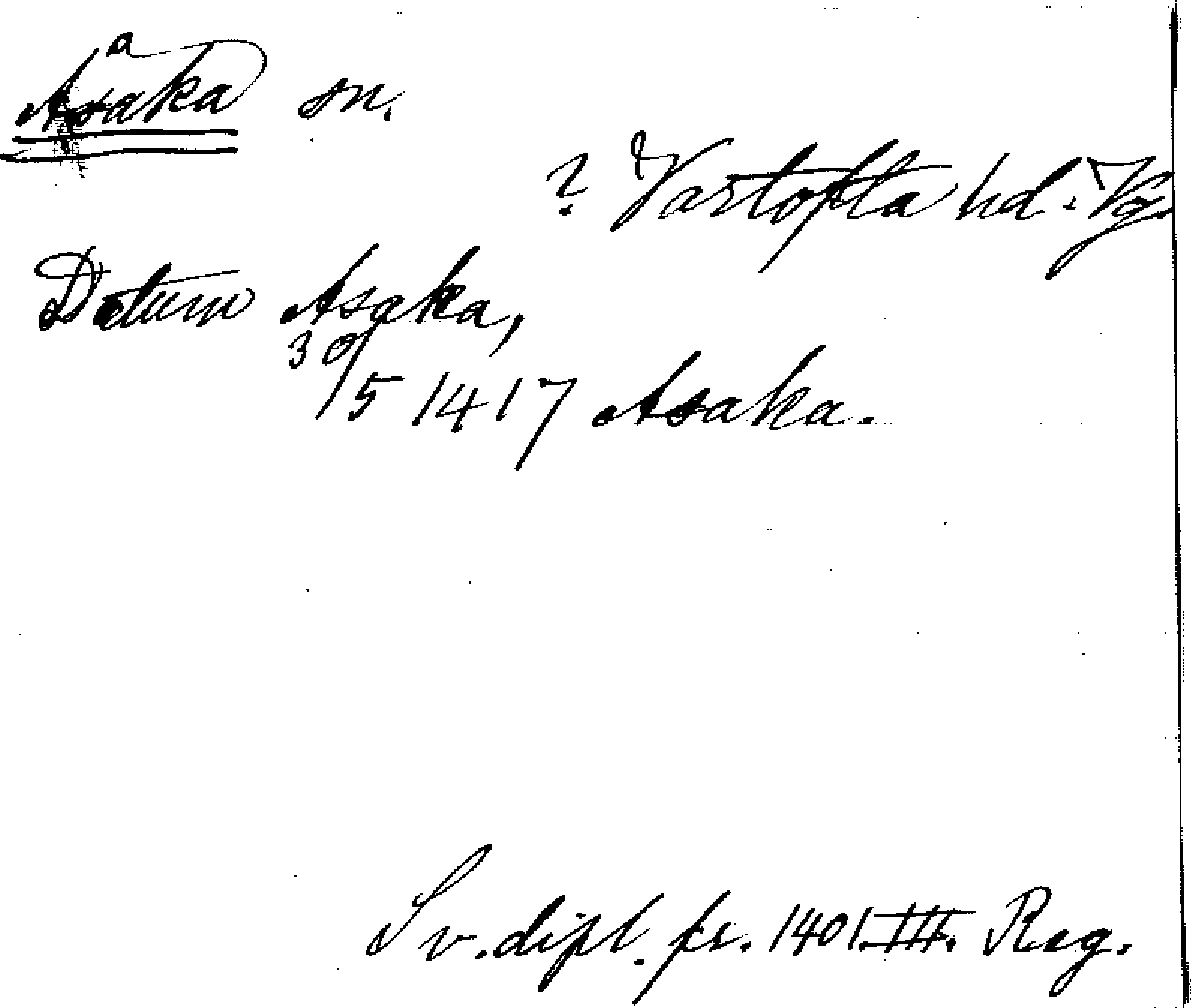 Åsaka sn.
? Vartofta hd. Vg.
Datum Asaka,
30/5 1417 Asaka.
Sv. dipl. fr. 1401. III. Reg.